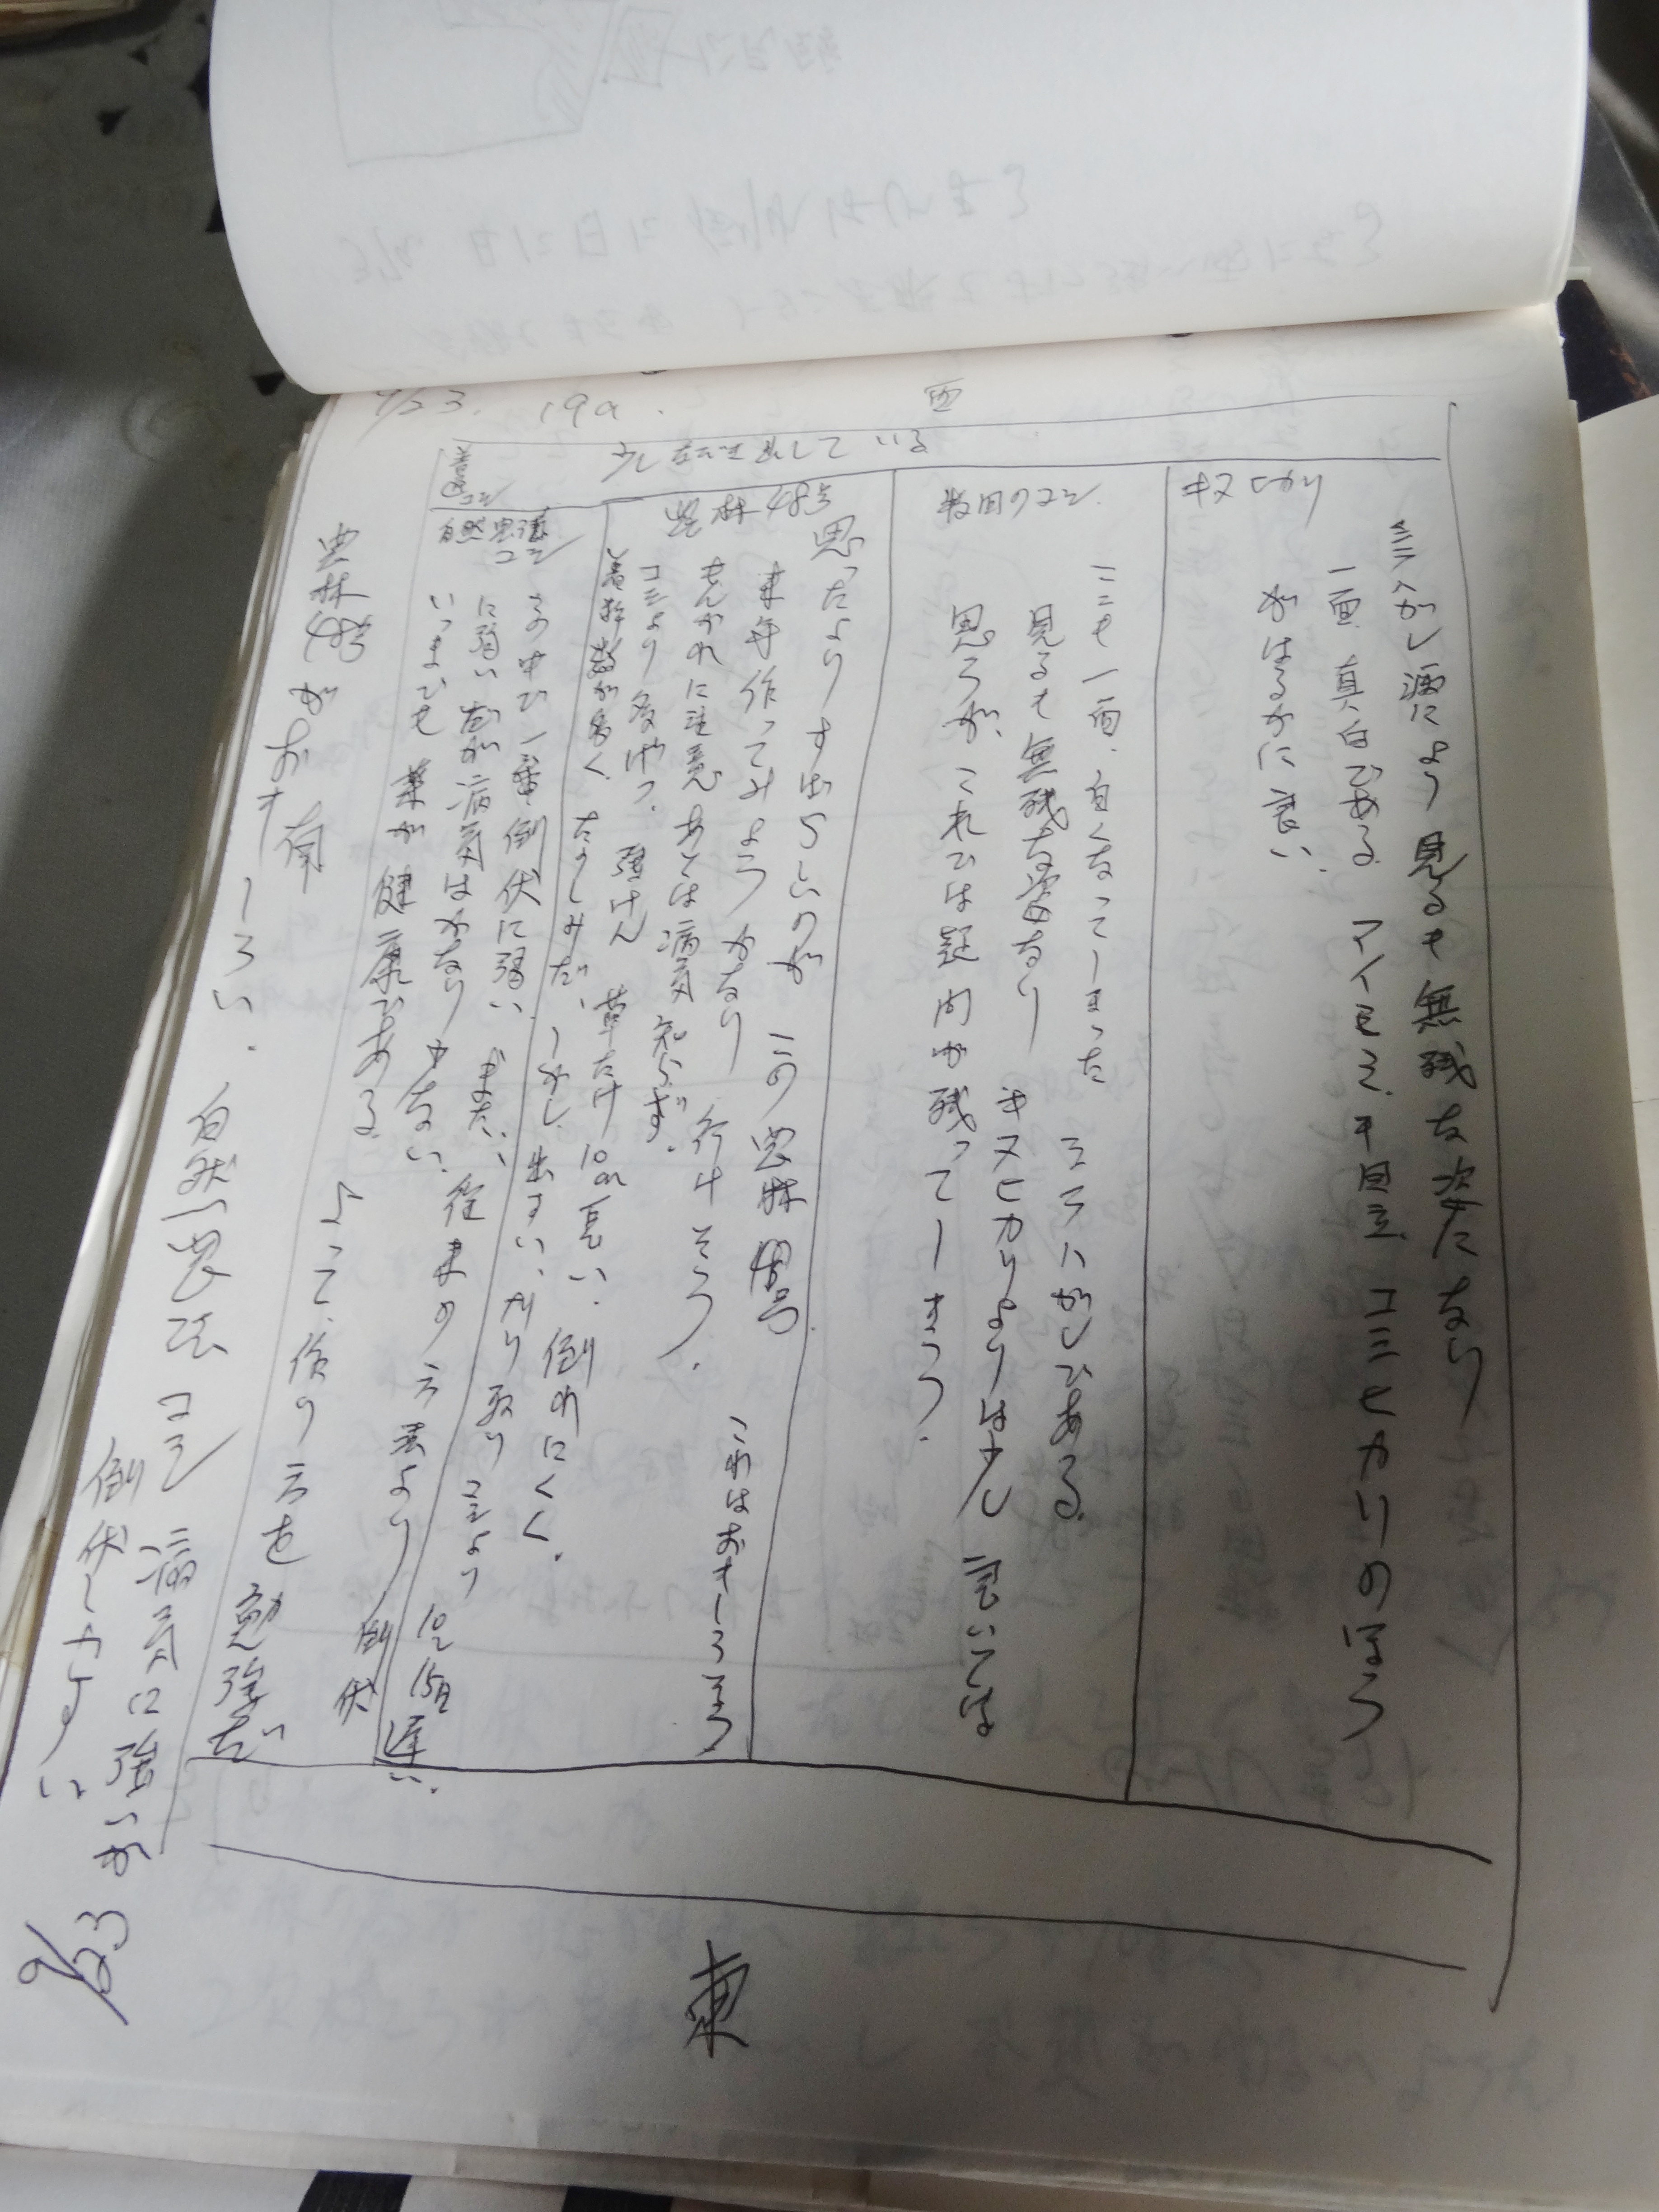 9/23. 19a.
西
少し なびき出して いる
キヌヒカリ
ミラハガレ病によって 見るも無残な姿になり
一面 真白である コシヒカリのほう
がはるかに良い
牧田のコシ
ここも一面、白くなってしまった ミラハガレである
見るも無残な姿なり キヌヒカリよりは少し
思うが、これでは疑問が残ってしまう.
農林48号
思ったより すばらしいのが この農林48号
来年作ってみよう かなり 行けそう. これはおもしろそう
もんがれに注意 あとは病気知らず.
コシより 強けん 草たけ 10cm 長い. 倒れにくく.
数が多く. たのしみだ. しかし 出すい, かり取り コシより 10〜15日 遅い.
自然農法コシ
この中で一番倒伏に弱い. また,
に弱い だが病気はかなり少ない. 従来の方法より 倒伏
いつまでも葉が健康である. よって、作り方を勉強だ
南
農林48号がおもしろい. 自然農法コシ 病気に強いが
倒伏しやすい
9/23
東